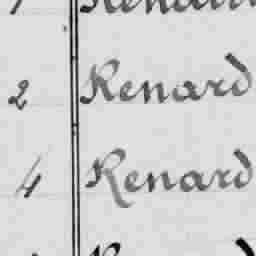 2 Renard
4 Renard